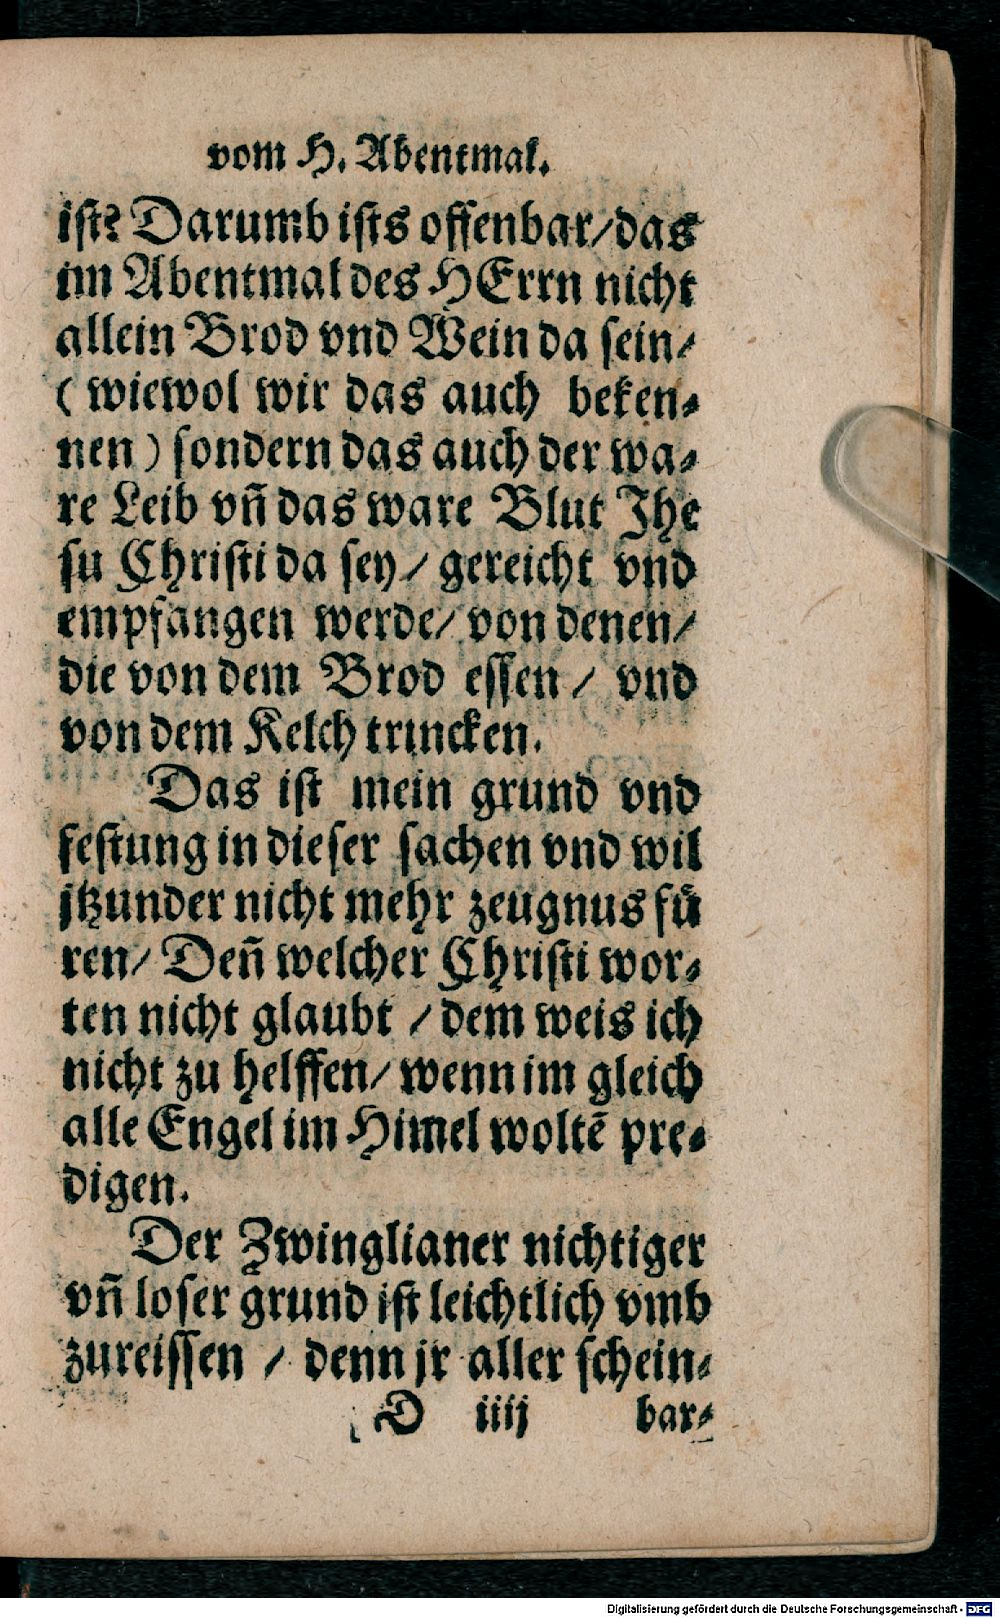 vom H. Abentmal.
ist? Darumb ists offenbar/das
im Abentmal des HErrn nicht
allein Brod vnd Wein da sein/
( wiewol wir das auch beken-
nen ) sondern das auch der wa-
re Leib vñ das ware Blut Jhe
su Christi da sey / gereicht vnd
empfangen werde/ von denen/
die von dem Brod essen / vnd
von dem Kelch trincken.
Das ist mein grund vnd
festung in dieser sachen vnd wil
jtzunder nicht mehr zeugnus fü
ren/ Deñ welcher Christi wor-
ten nicht glaubt / dem weis ich
nicht zu helffen/ wenn im gleich
alle Engel im Himel woltẽ pre-
digen.
Der Zwinglianer nichtiger
vñ loser grund ist leichtlich vmb
zureissen / denn jr aller schein-
D iiij bar-
Digitalisierung gefördert durch die Deutsche Forschungsgemeinschaft - DFG